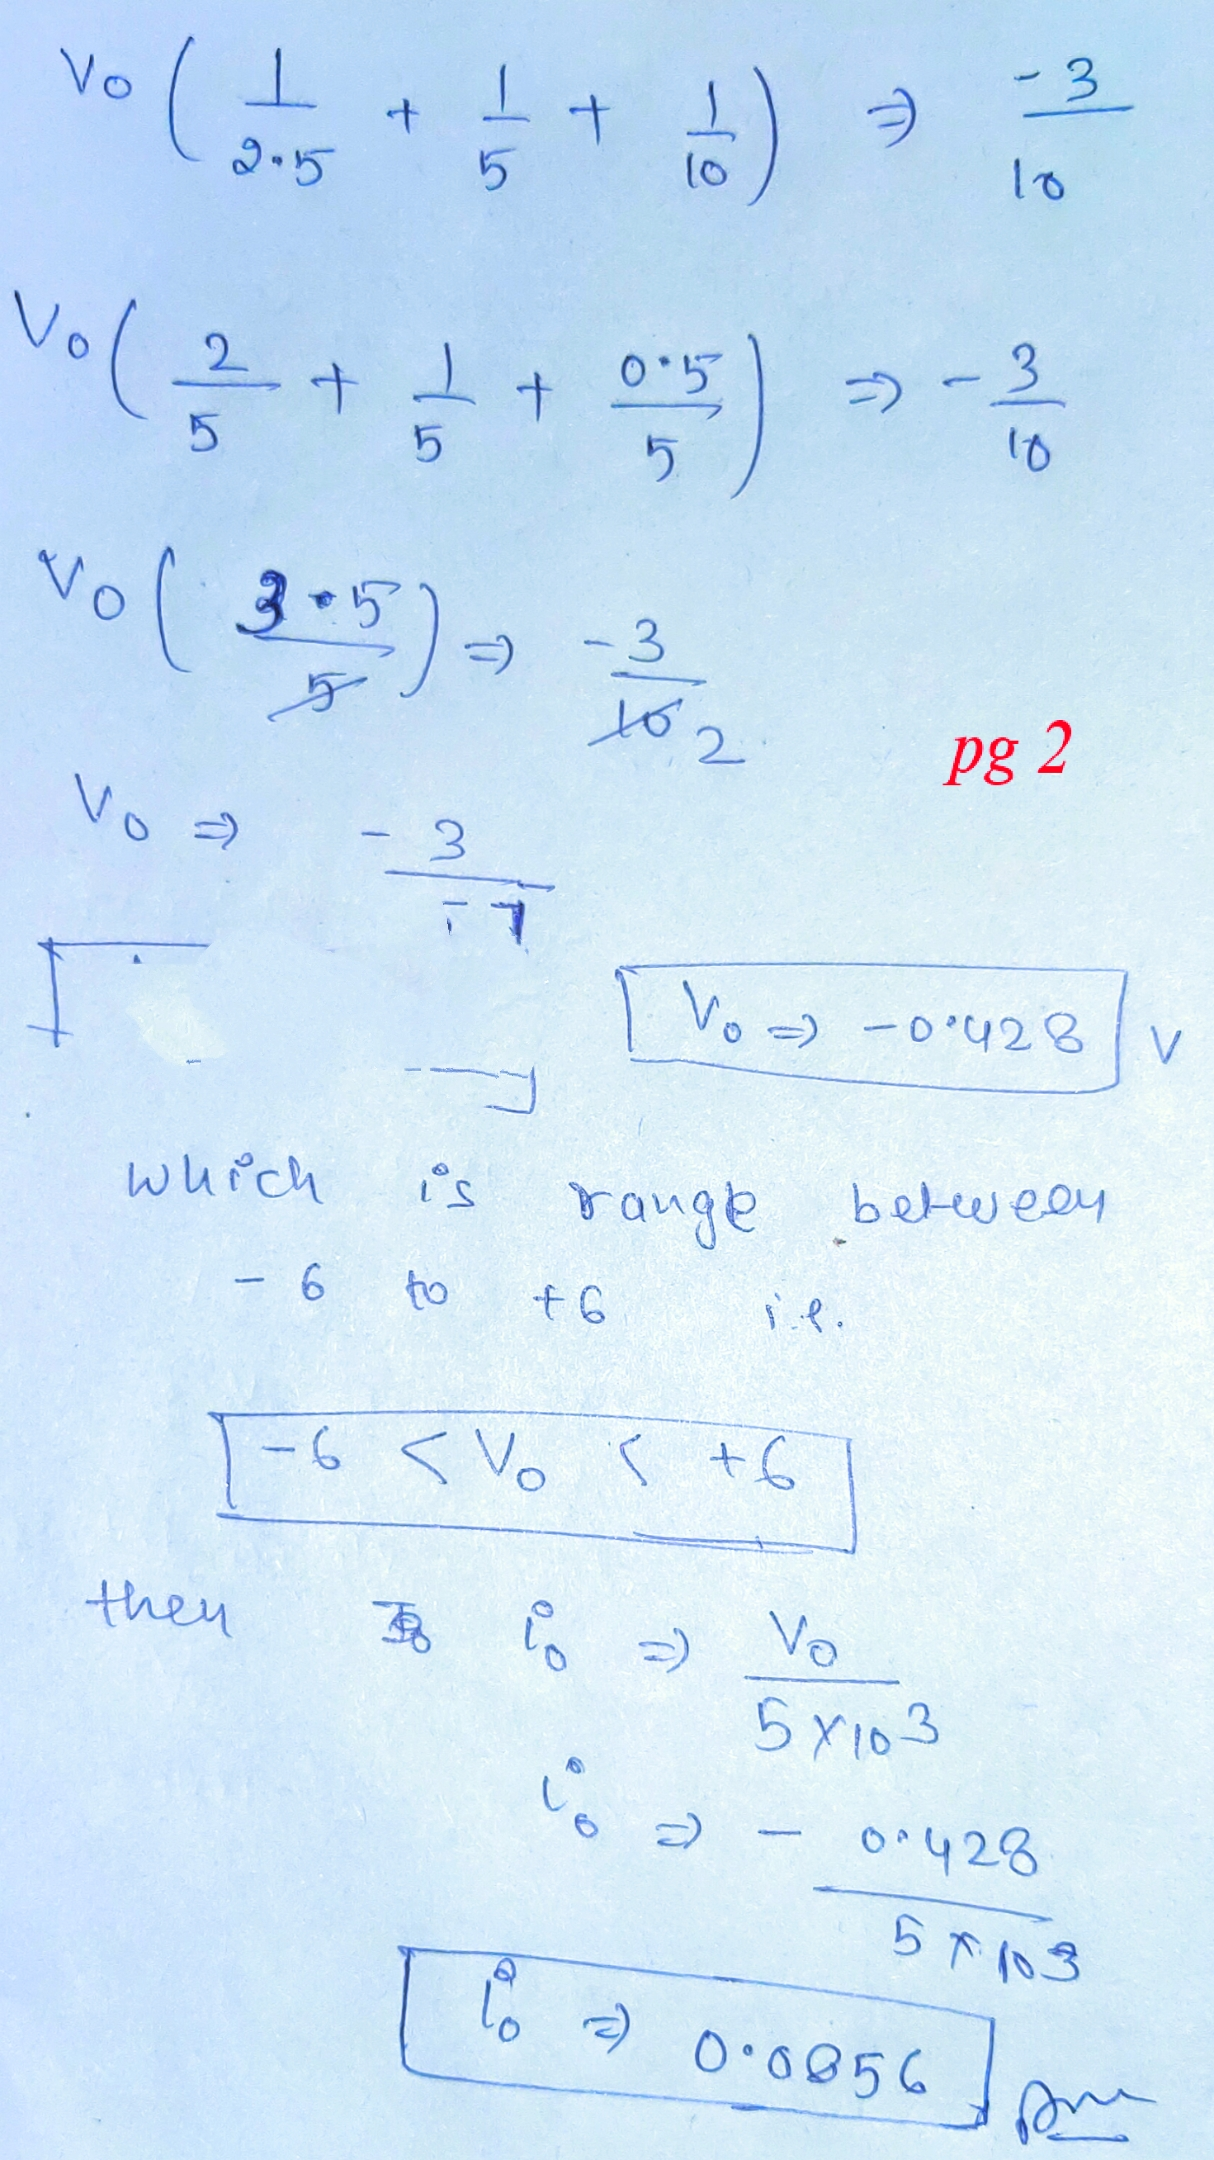 Vo ( 1/2.5 + 1/5 + 1/10 ) => -3/10
Vo ( 2/5 + 1/5 + 0.5/5 ) => -3/10
Vo ( 3.5/5 ) => -3/10 2
pg 2
Vo => -3/7
Vo => -0.428 V
which is range between
-6 to +6 i.e.
-6 < Vo < +6
then io => Vo/5×10³
io => - 0.428/5×10³
io => 0.0856